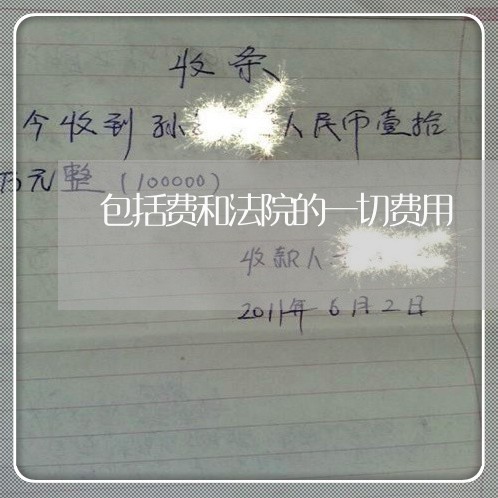 收条
今收到孙 人民币壹拾
万元整(100000)
包括费和法院的一切费用
收款人
2011年6月2日